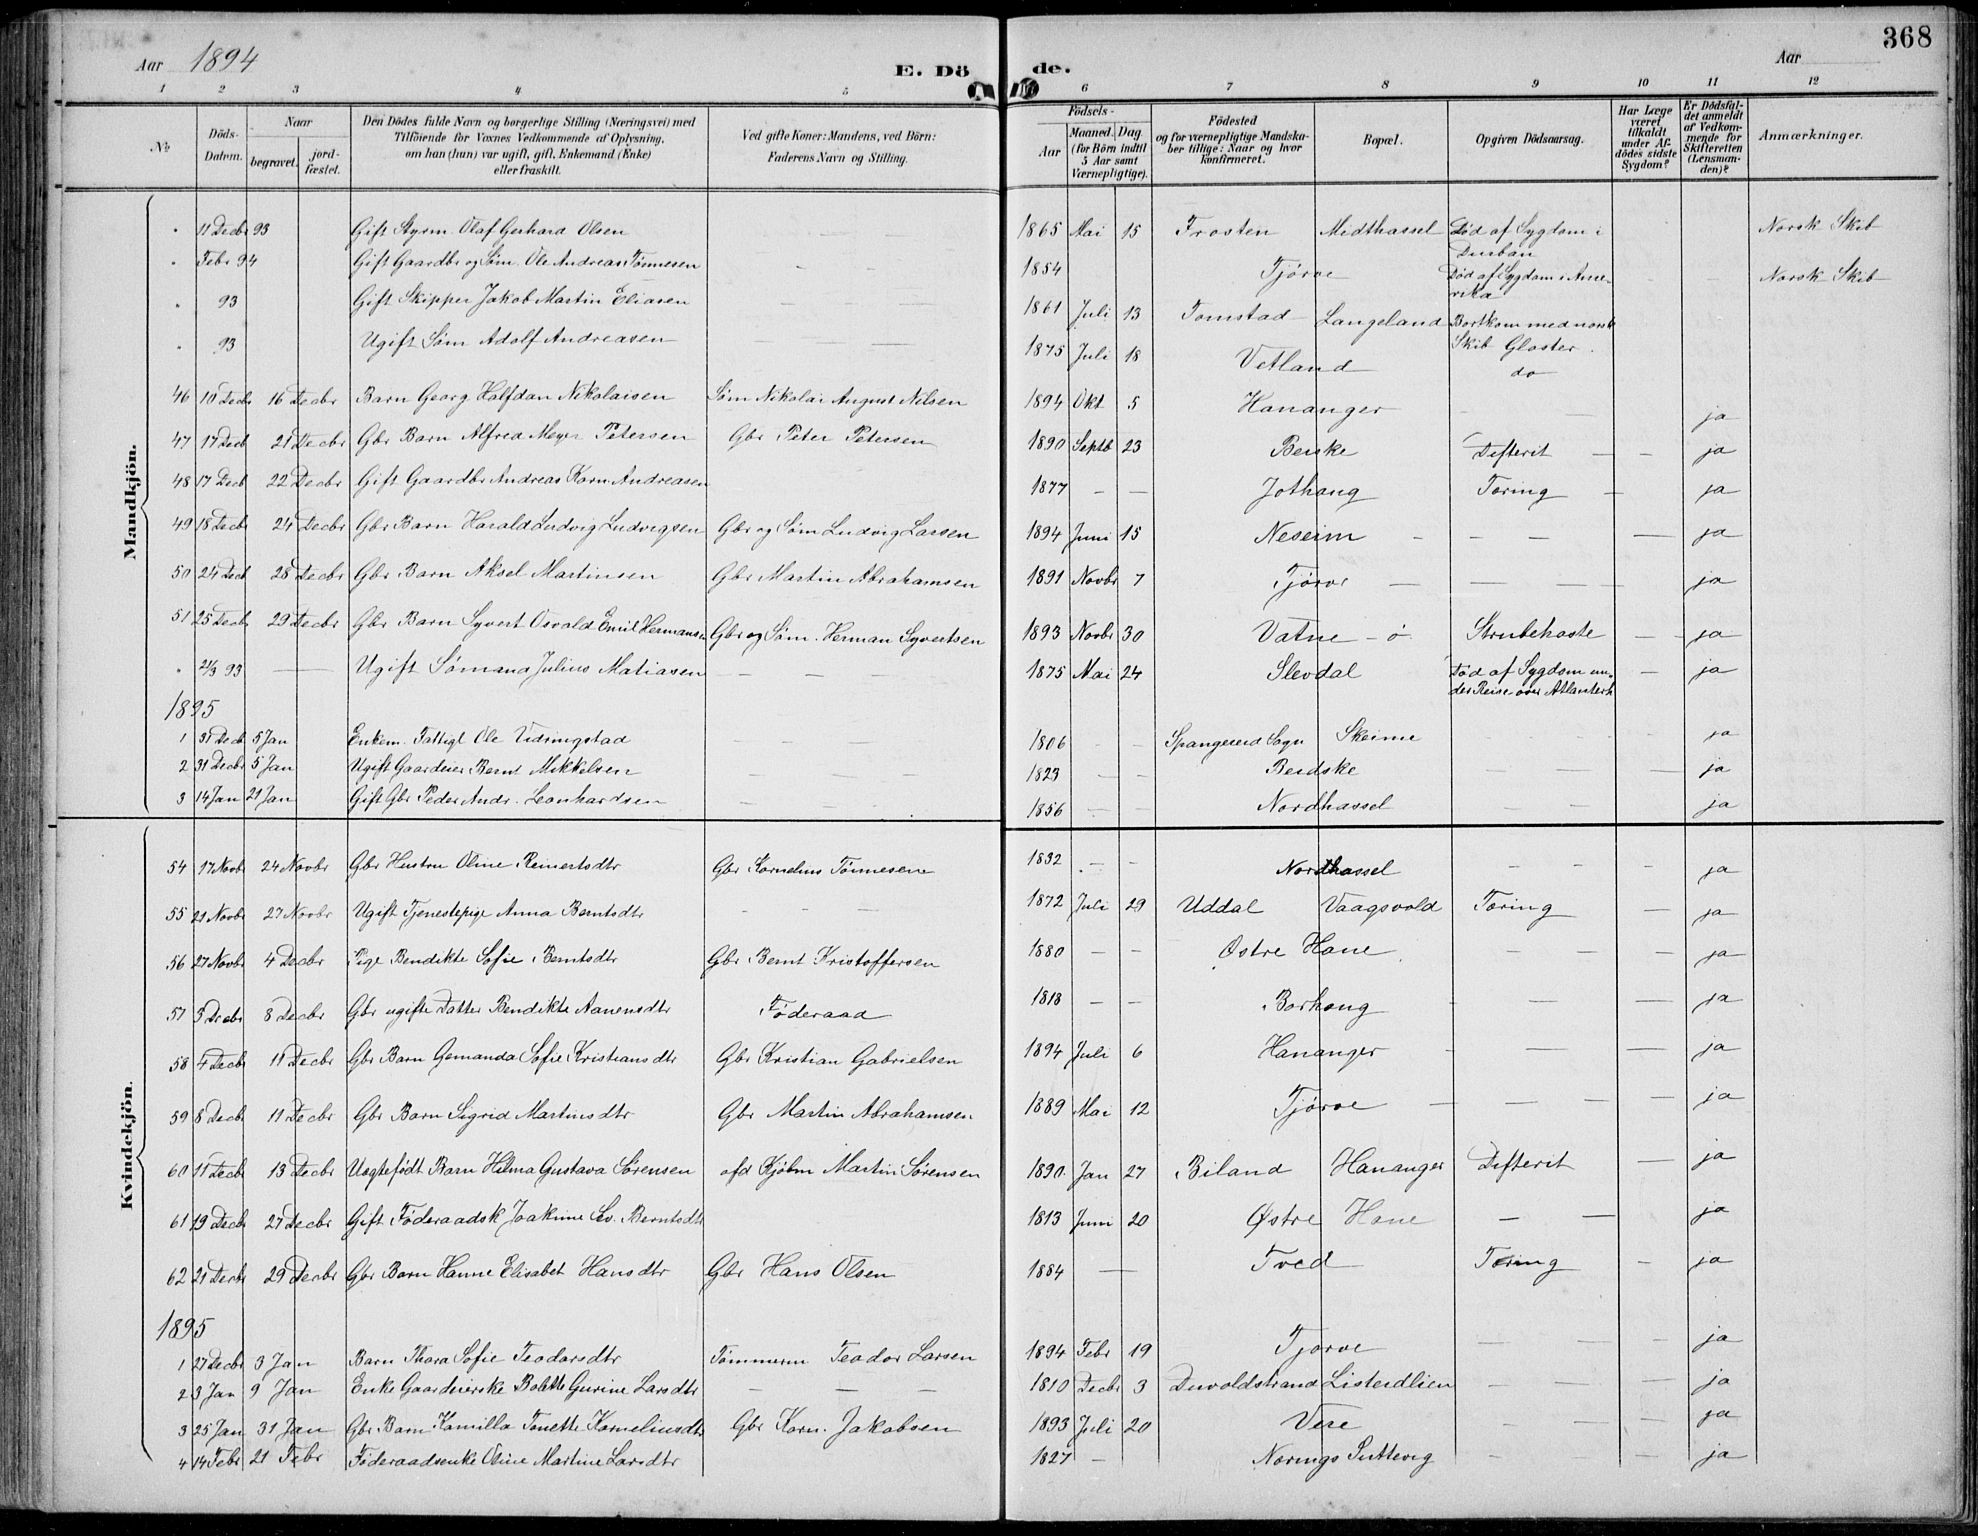 368
Aar 1894 E. Döde. Aar
1 2 3 4 5 6 7 8 9 10 11 12
№
Döds-Datum.
Naar
begravet.
jord-fæstet.
Den Dödes fulde Navn og borgerlige Stilling (Næringsvei) med
Tilföiende for Voxnes Vedkommende af Oplysning,
om han (hun) var ugift, gift, Enkemand (Enke)
eller fraskilt.
Ved gifte Koner: Mandens, ved Börn:
Faderens Navn og Stilling.
Födsels-
Aar
Maaned. Dag
(for Börn indtil
5 Aar samt
Værnepligtige).
Födested
og for værnepligtige Mandska-
ber tillige: Naar og hvor
konfirmeret.
Bopæl.
Opgiven Dödsaarsag.
Har Læge
været
tilkaldt
under Af-
dödes sidste
Sygdom?
Er Dödsfal-
det anmeldt
af Vedkom-
mende for
Skifteretten
(Lensman-
den)?
Anmærkninger.
Mandkjön.
" 11 Decbr 93 Gift Styrm. Olaf Gerhard Olsen 1865 Mai 15 Frosten Midthassel Død af Sygdom i Durban Norsk Skib
" Febr 94 Gift Gaardbr og Søm. Ole Andreas Tønnesen – – 1854 Tjørve Død af Sygdom i Amerika – – Norsk Skib
" 93 Gift Skipper Jakob Martin Eliasen – – 1861 Juli 13 Tomstad Langeland Bortkom med norsk Skib Gloster.
" 93 Ugift Søm Adolf Andreasen – – 1875 Juli 18 Vetland do
46 10 Decbr 16 Decbr Barn Georg Halfdan Nikolaisen Søm Nikolai August Nilsen 1894 Okt 5 Hananger – – ja
47 17 Decb 21 Decbr Gbr Barn Alfred Meyer Petersen Gbr Peter Petersen 1890 Septb 23 Berske Difterit – – ja
48 17 Decb 22 Decbr Gift Gaardbr Andreas Korn. Andreasen 1877 – – Jothaug Tæring – ja
49 18 Decbr 24 Decbr Gbr Barn Harald Ludvig Ludvigsen Gbr og Søm Ludvig Larsen 1894 Juni 15 Neseim – – – – ja
50 24 Decb 28 Decbr Gbr Barn Aksel Martinsen Gbr Martin Abrahamsen 1891 Novbr 7 Tjørve – – – – ja
51 25 Decb 29 Decbr Gbr Barn Syvert Osvald Emil Hermansen Gbr og Søm. Herman Syvertsen 1893 Novbr 30 Vatne – ø Strubehoste – – ja
" 2/3 93 – Ugift Sømand Julius Matiasen – – – 1875 Mai 24 Slevdal Død af Sygdom under Reise over Atlanterh – ja
1895
1 31 Decb 5 Jan Enkem. Fattigl Ole Vidringstad – – – 1806 – – Spangereid Sogn Skeime – – – – ja
2 31 Decbr 5 Jan Ugift Gaardeier Bernt Mikkelsen – – – 1823 – – Berdske – – – – ja
3 14 Jan 21 Jan Gift Gbr Peder Andr. Leonhardsen – – – 1856 – – Nordhassel – – – – ja
Kvindekjön.
54 17 Novbr 24 Novbr Gbr Hustru Oline Reinertsdtr Gbr Kornelius Tønnesen 1832 – – Nordhassel – – – ja
55 21 Novbr 27 Novbr Ugift Tjenestepige Anna Berntsdtr – – – 1872 Juli 29 Uddal Vaagsvold Tæring – ja
56 27 Novbr 4 Decbr Pige Bendikte Sofie Berntsdtr Gbr Bernt Kristoffersen 1880 – – Østre Hane – – – ja
57 3 Decbr 8 Decbr Gbr ugifte Datter Bendikte Aanensdtr Føderaad 1818 – – Borhaug – – – – ja
58 4 Decb 11 Decbr Gbr Barn Gemanda Sofie Kristiansdtr Gbr Kristian Gabrielsen 1894 Juli 6 Hananger – – – – ja
59 8 Decb 11 Decbr Gbr Barn Sigrid Martinsdtr Gbr Martin Abrahamsen 1889 Mai 12 Tjørve – – – – ja
60 11 Decb 13 Decbr Uægtefødt Barn Hilma Gustava Sørensen afd Kjøbm Martin Sørensen 1890 Jan 27 Biland Hananger Difterit – ja
61 19 Decb 27 Decbr Gift Føderaadsk Joakime Sev. Berntsdtr 1813 Juni 20 Østre Hane – – ja
62 21 Decb 29 Decbr Gbr Barn Hanne Elisabet Hansdtr Gbr Hans Olsen 1884 – Tved Tæring – ja
1895
1 27 Decbr 3 Jan Barn Thora Sofie Teodorsdtr Tømmerm Teodor Larsen 1894 Febr 19 Tjørve – – – ja
2 3 Jan 9 Jan Enke Gaardeierske Bolette Gurine Larsdtr – – – 1810 Decbr 3 Duvoldstrand Listeidlien – – – ja
3 25 Jan 31 Jan Gbr. Barn Kamilla Tonette Korneliusdtr Gbr Korn. Jakobsen 1893 Juli 20 Vere – – – ja
4 14 Febr 21 Febr Føderaadsenke Oline Martine Larsdtr 1827 – Nørings Puttevig – – – ja